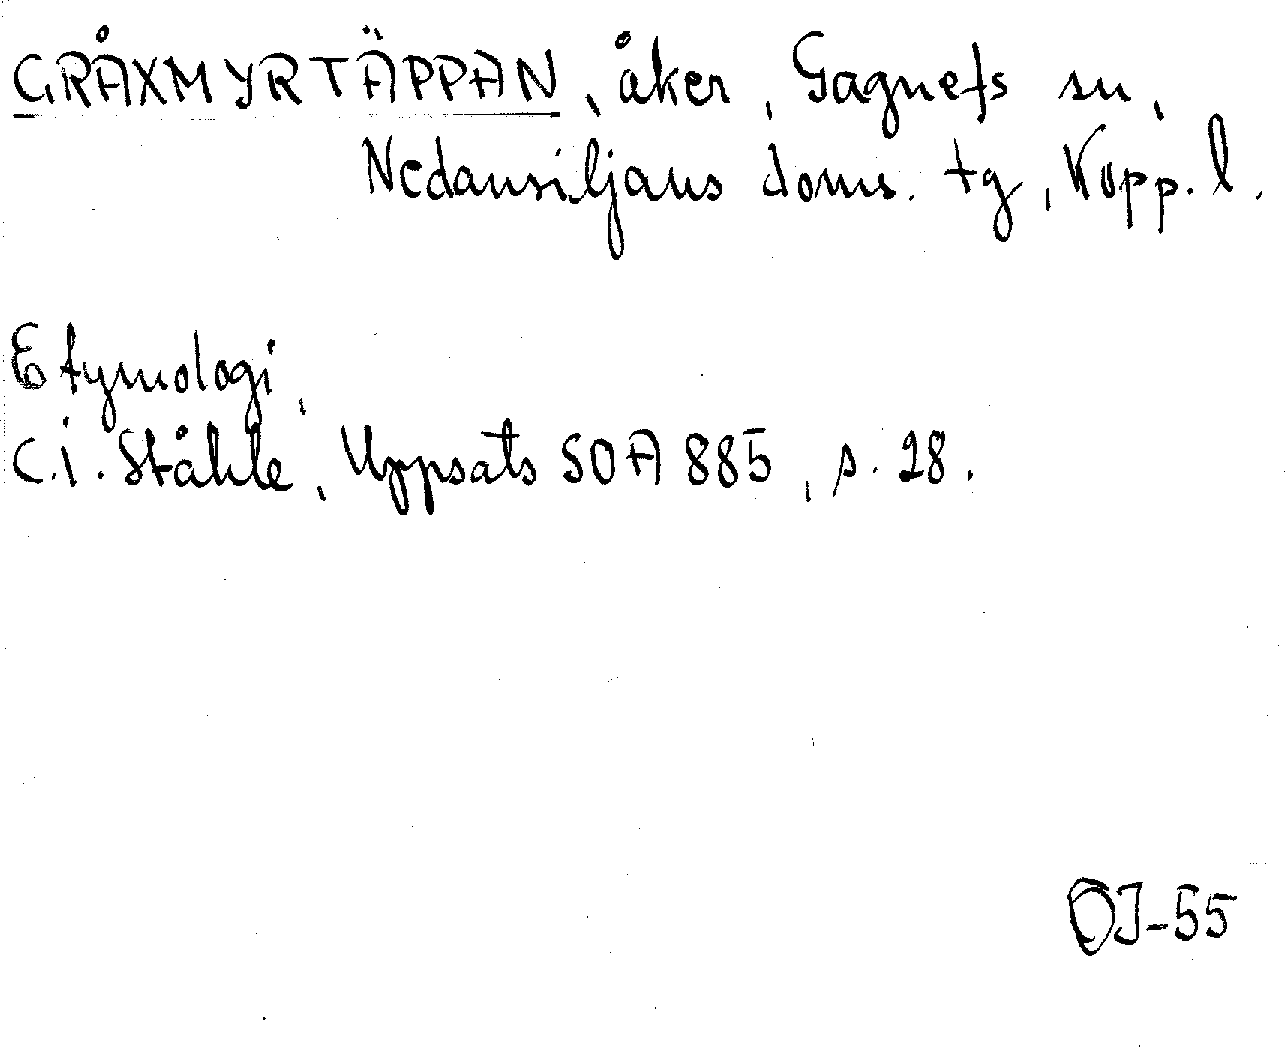 GRÅXMYRTÄPPAN, åker, Gagnefs sn,
Nedansiljans doms. tg, Kopp. l.
Etymologi,
C.I. Ståhle, Uppsats SOA 885, s. 28.
OJ-55